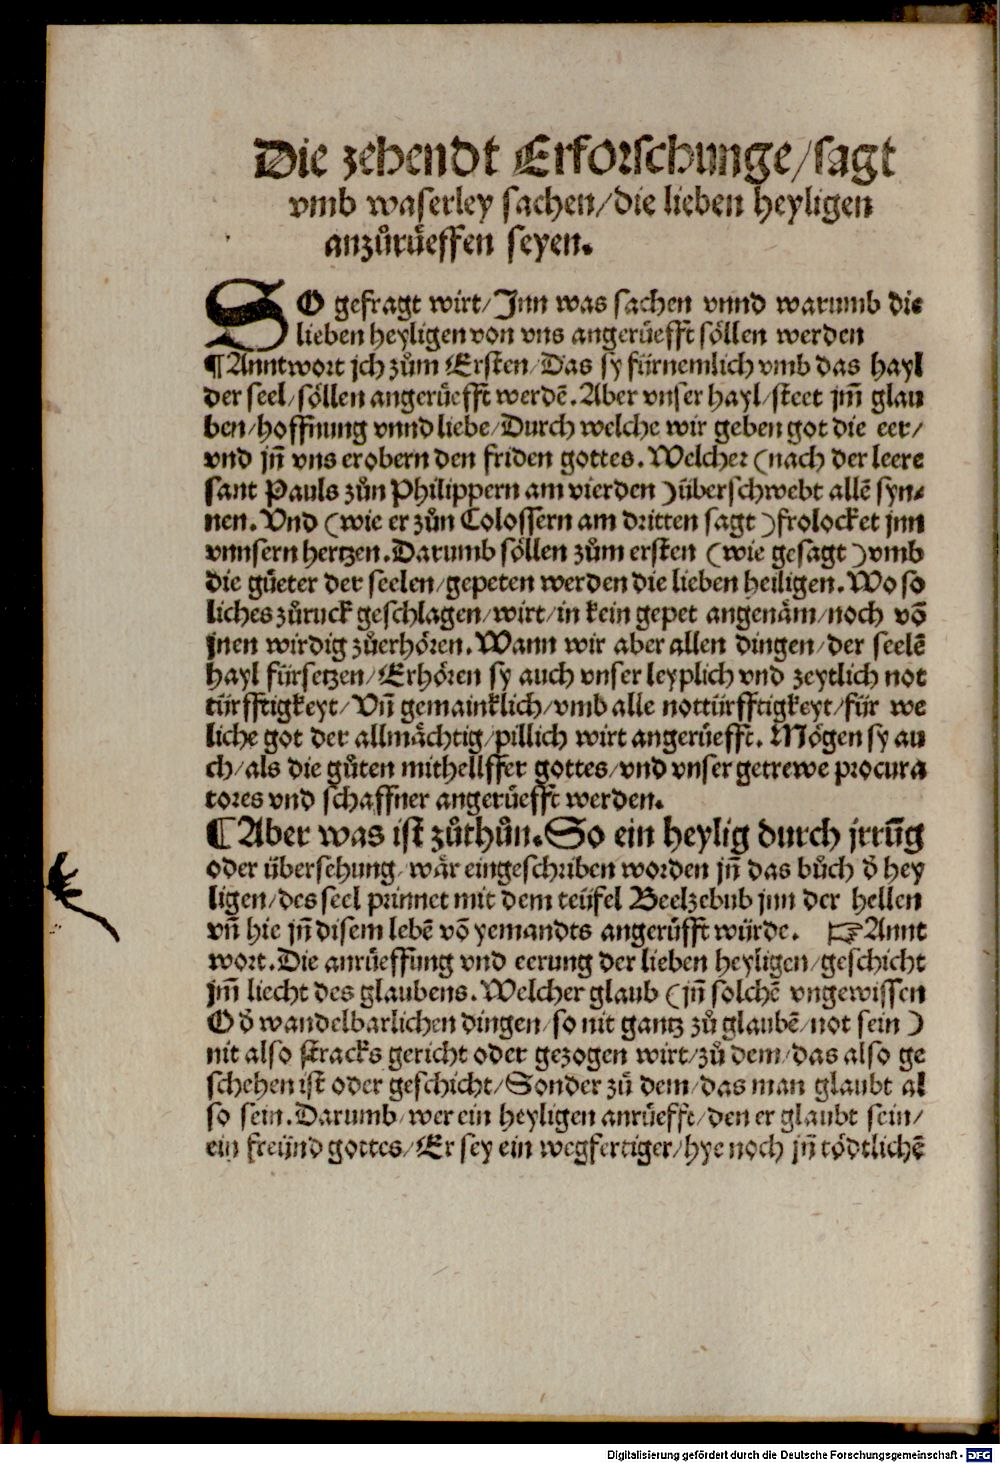 Die zehendt Erforschunge/sagt
vmb waserley sachen/die lieben heyligen
anzůrüeffen seyen.
SO gefragt wirt/Jnn was sachen vnnd warumb die
lieben heyligen von vns angerüefft söllen werden
¶Anntwort jch zům Ersten/Das sy fürnemlich vmb das hayl
der seel/söllen angerüefft werdē. Aber vnser hayl/steet jm̄ glau
ben/hoffnung vnnd liebe/Durch welche wir geben got die eer/
vnd jn̄ vns erobern den friden gottes. Welcher (nach der leere
sant Pauls zůn Philippern am vierden) überschwebt allē syn⸗
nen. Vnd (wie er zůn Colossern am dritten sagt) frolocket jnn
vnnsern hertzen. Darumb söllen zům ersten (wie gesagt) vmb
die güeter der seelen/gepeten werden die lieben heiligen. Wo so
liches zůruck geschlagen/wirt/in kein gepet angenäm/noch vō
jnen wirdig zůerhören. Wann wir aber allen dingen/der seelē
hayl fürsetzen/Erhören sy auch vnser leyplich vnd zeytlich not
türfftigkeyt/Vn̄ gemainklich/vmb alle nottürfftigkeyt/für we
liche got der allmächtig/pillich wirt angerüefft. Mögen sy au
ch/als die gůten mithellffer gottes/vnd vnser getrewe procura
tores vnd schaffner angerüefft werden.
¶Aber was ist zůthůn. So ein heylig durch jrrūg
oder übersehung/wär eingeschriben worden jn̄ das bůch d̄ hey
ligen/des seel prinnet mit dem teüfel Beelzebub jnn der hellen
vn̄ hie jn̄ disem lebē vō yemandts angerüfft würde. ☞Annt
wort. Die anrüeffung vnd eerung der lieben heyligen/geschicht
jm̄ liecht des glaubens. Welcher glaub (jn̄ solchē vngewissen
Od̄ wandelbarlichen dingen/so nit gantz zů glaubē/not sein)
nit also stracks gericht oder gezogen wirt/zů dem/das also ge
schehen ist oder geschicht/Sonder zů dem/das man glaubt al
so sein. Darumb/wer ein heyligen anrüefft/den er glaubt sein/
ein freünd gottes/Er sey ein wegfertiger/hye noch jn̄ tödtlichē
Digitalisierung gefördert durch die Deutsche Forschungsgemeinschaft - DFG